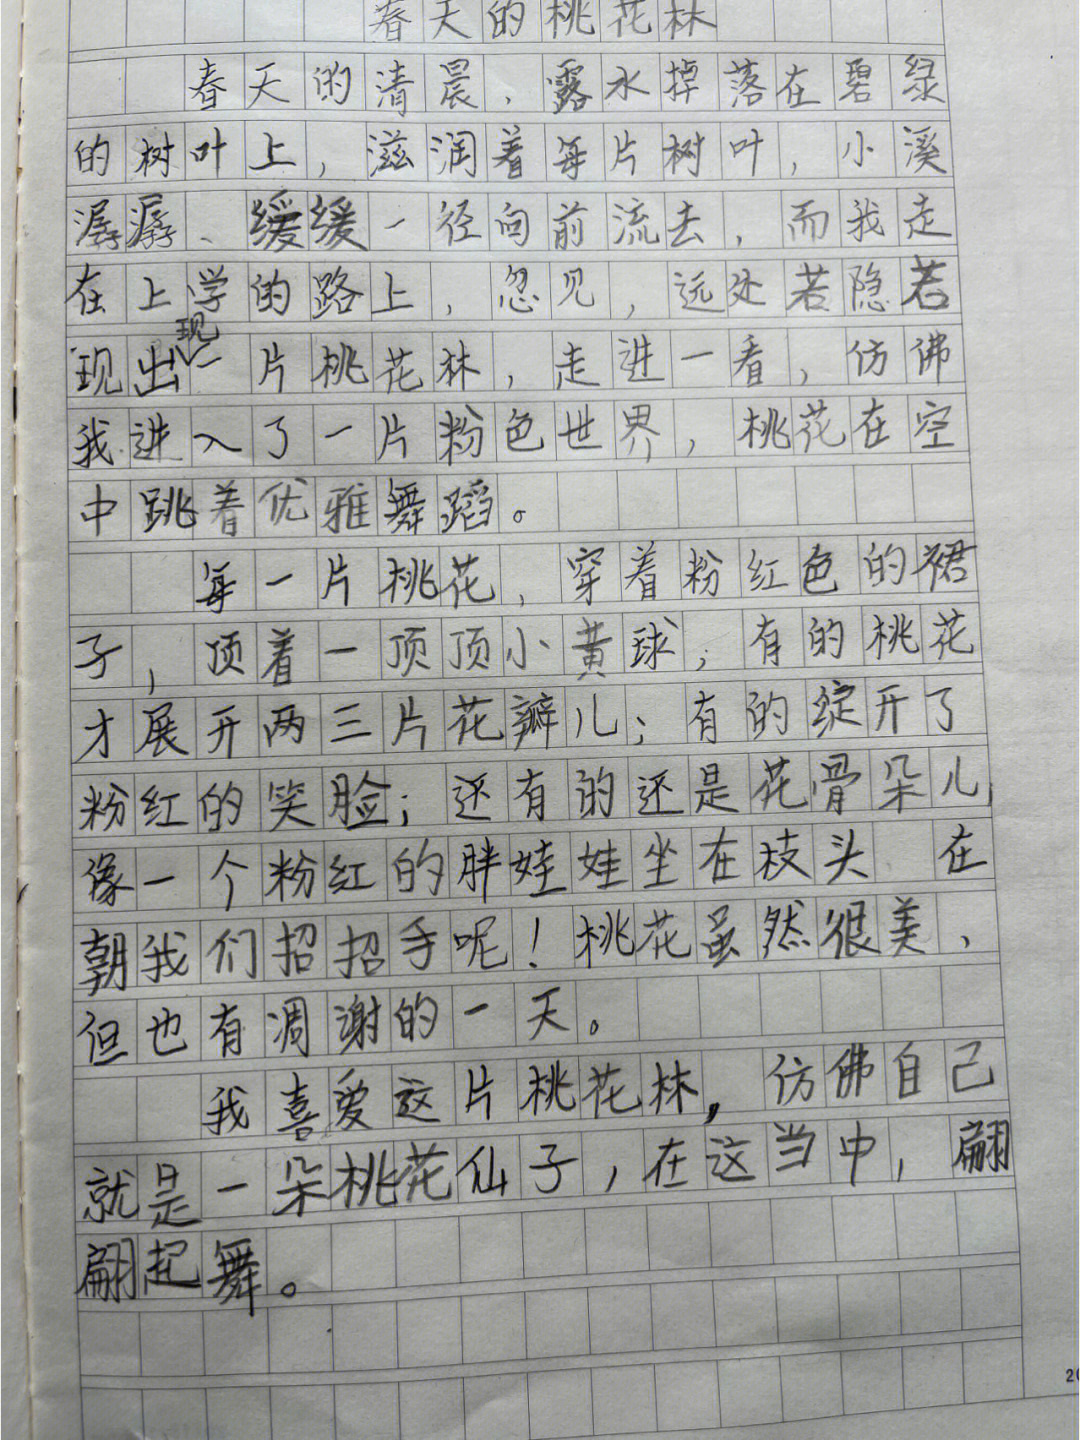 春天的桃花林
春天的清晨，露水掉落在碧绿
的树叶上，滋润着每片树叶，小溪
潺潺、缓缓一径向前流去，而我走
在上学的路上，忽见，远处若隐若
现出现一片桃花林，走进一看，仿佛
我进入了一片粉色世界，桃花在空
中跳着优雅舞蹈。
每一片桃花，穿着粉红色的裙
子，顶着一顶顶小黄球；有的桃花
才展开两三片花瓣儿；有的绽开了
粉红的笑脸；还有的还是花骨朵儿，
像一个粉红的胖娃娃坐在枝头 在
朝我们招招手呢！桃花虽然很美，
但也有凋谢的一天。
我喜爱这片桃花林，仿佛自己
就是一朵桃花仙子，在这当中，翩
翩起舞。
20